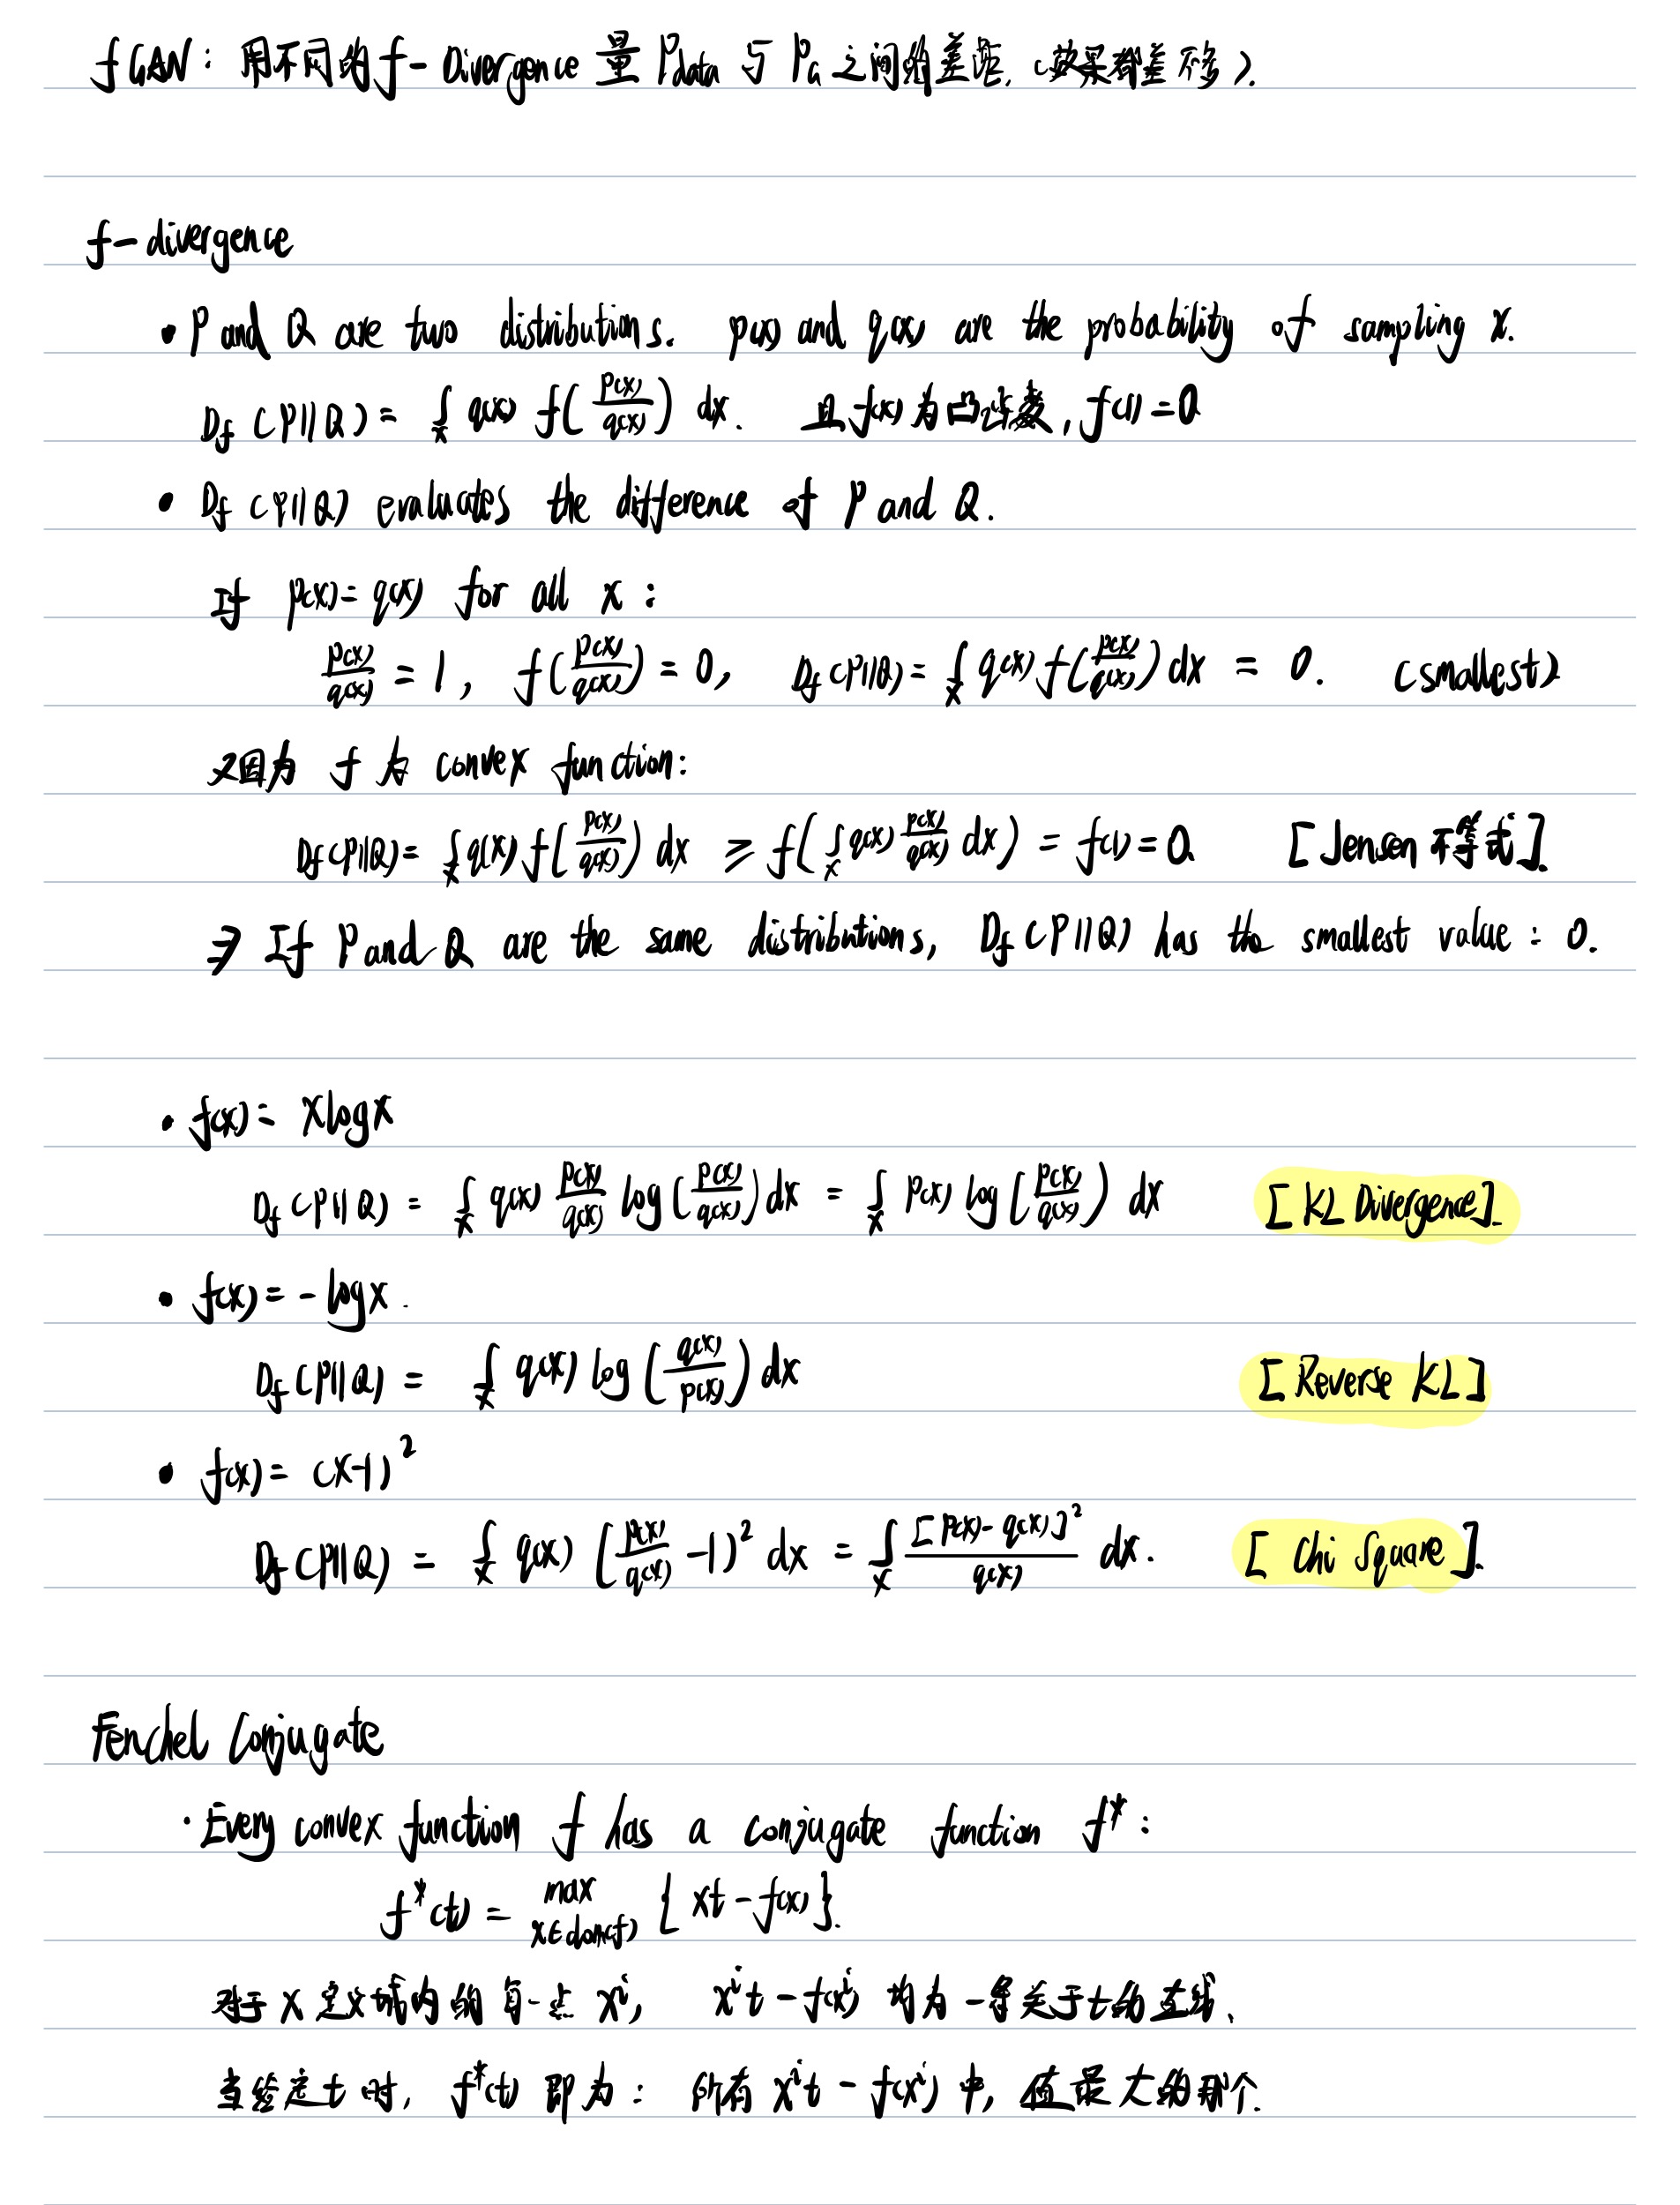 fGAN: 用不同的f-Divergence 量 Pdata 与 PG 之间的差距. (效果都差不多).
f-divergence
• P and Q are two distributions. p(x) and q(x) are the probability of sampling x.
Df(P||Q) = ∫x q(x) f(p(x)/q(x)) dx. 且 f(x) 为凸函数, f(1) = 0
• Df(P||Q) evaluates the difference of P and Q.
If p(x) = q(x) for all x:
p(x)/q(x) = 1, f(p(x)/q(x)) = 0, Df(P||Q) = ∫x q(x) f(p(x)/q(x)) dx = 0. (smallest)
又因为 f 为 convex function:
Df(P||Q) = ∫x q(x) f(p(x)/q(x)) dx ≥ f(∫x q(x) p(x)/q(x) dx) = f(1) = 0. [Jensen 不等式].
⇒ If P and Q are the same distributions, Df(P||Q) has the smallest value: 0.
• f(x) = xlogx
Df(P||Q) = ∫x q(x) p(x)/q(x) log(p(x)/q(x)) dx = ∫x p(x) log(p(x)/q(x)) dx [KL Divergence].
• f(x) = -logx.
Df(P||Q) = ∫x q(x) log(q(x)/p(x)) dx [Reverse KL]
• f(x) = (x-1)²
Df(P||Q) = ∫x q(x) (p(x)/q(x) -1)² dx = ∫x [p(x) - q(x)]²/q(x) dx. [Chi Square].
Fenchel Conjugate
· Every convex function f has a conjugate function f*:
f*(t) = max x∈dom(f) { xt - f(x) }.
对于 x 定义域内的每一点 xⁱ, xⁱt - f(xⁱ) 均为一条关于t的直线.
当给定t时, f*(t) 即为: 所有 xⁱt - f(xⁱ) 中, 值最大的那个.